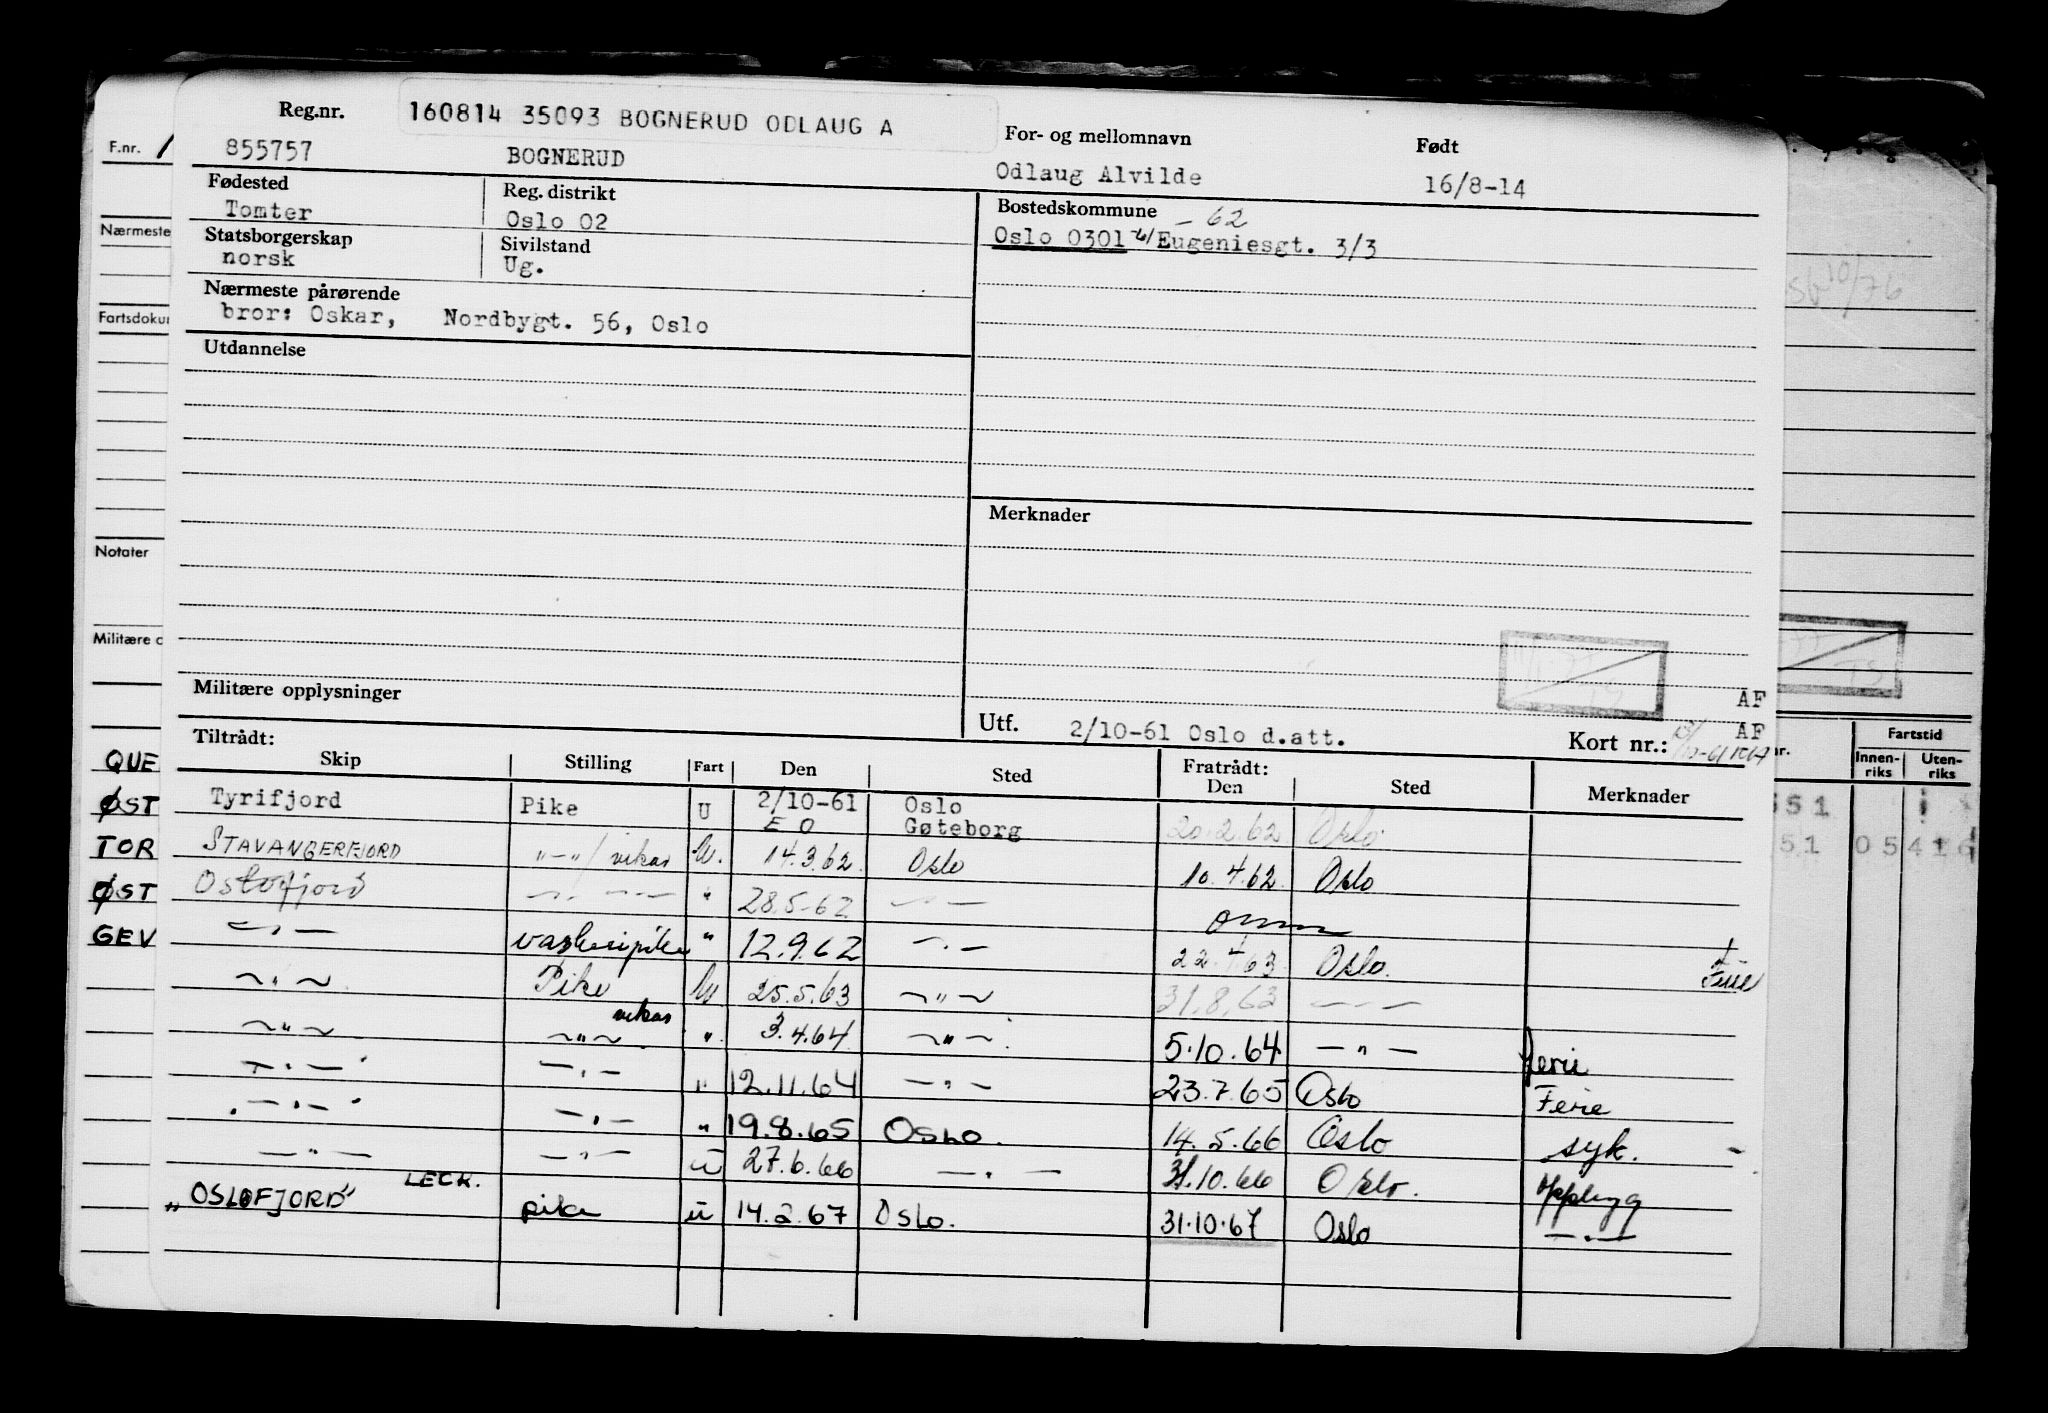 Reg.nr. 160814 35093 BOGNERUD ODLAUG A For- og mellomnavn Født
855757 BOGNERUD Odlaug Alvilde 16/8-14
Fødested Reg. distrikt Bostedskommune
Tomter Oslo 02 - 62
Statsborgerskap Sivilstand Oslo 0301 Eugeniesgt. 3/3
norsk Ug.
Nærmeste pårørende
bror: Oskar, Nordbygt. 56, Oslo
Utdannelse
Merknader
Militære opplysninger
AF
Utf. 2/10-61 Oslo d.att. AF
Kort nr.:
Tiltrådt: Fratrådt:
Skip Stilling Fart Den Sted Den Sted Merknader
Tyrifjord Pike U 2/10-61 Oslo
E O Gøteborg 20.2.62 Oslo
STAVANGERFJORD -"- / vikar U. 14.3.62 Oslo 10.4.62 Oslo
Oslofjord -"- -"- " 28.5.62 -"- omm
-"- vaskeripike " 12.9.62 -"- 22.4.63 Oslo. Ferie
-"- Pike U 25.5.63 -"- 31.8.63 -"-
-"- -"- vikar " 3.4.64 -"- 5.10.64 -"- ferie
-"- -"- " 12.11.64 -"- 23.7.65 Oslo Ferie
-"- -"- " 19.8.65 OSLO. 14.5.66 Oslo syk.
-"- -"- U 27.6.66 -"- 31.10.66 Oslo. Opplegg
"OSLOFJORD" LECK. pike U 14.2.67 OSLO. 31.10.67 Oslo -"-
F.nr. 1
Nærmeste
Fartsdoku
Notater
Militære o
QUE
ØST
TOR
ØST
GEV
10/76
TS
nr. Fartstid
Innen-riks Uten-riks
551
51 05416